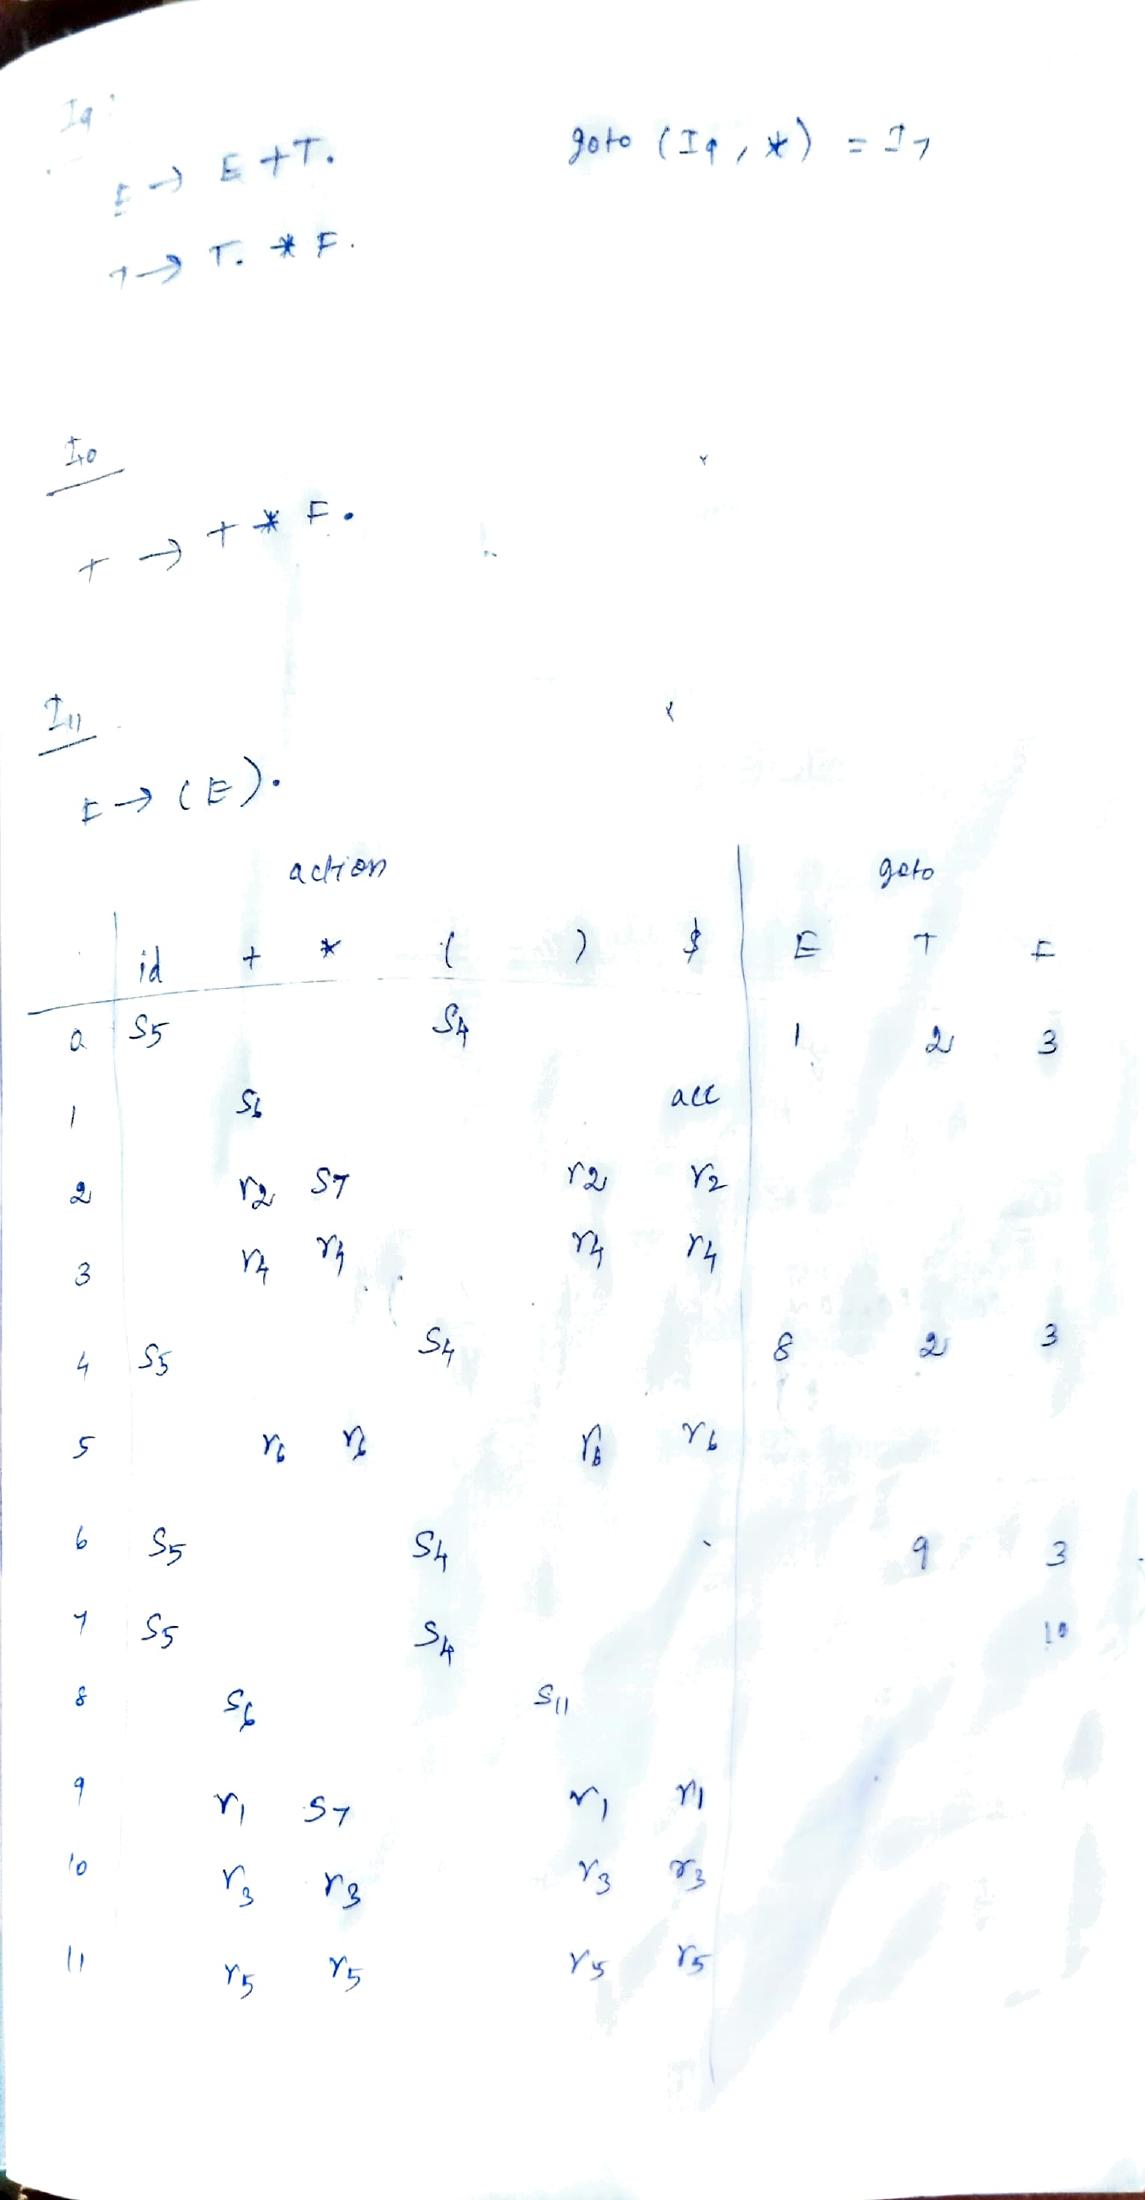 I9:
E → E + T.
goto (I9, *) = I7
T → T. * F.
I10
T → T * F.
I11
F → (E).
action goto
id + * ( ) $ E T F
0 S5 S4 1 2 3
1 S6 acc
2 r2 S7 r2 r2
3 r4 r4 r4 r4
4 S5 S4 8 2 3
5 r6 r6 r6 r6
6 S5 S4 9 3
7 S5 S4 10
8 S6 S11
9 r1 S7 r1 r1
10 r3 r3 r3 r3
11 r5 r5 r5 r5